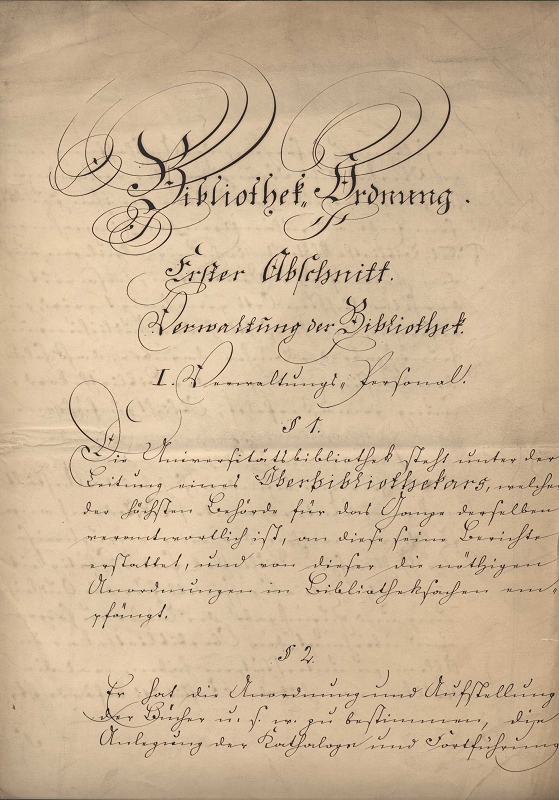 Bibliothek-Ordnung.
Erster Abschnitt.
Verwaltung der Bibliothek.
I. Verwaltungs-Personal.
§ 1.
Die Universitätsbibliothek steht unter der
Leitung eines Oberbibliothekars, welcher
der höchsten Behörde für das Ganze derselben
verantwortlich ist, an diese seine Berichte
erstattet, und von dieser die nöthigen
Anordnungen in Bibliotheksachen em-
pfängt.
§ 2.
Er hat die Anordnung und Aufstellung
der Bücher u. s. w. zu bestimmen, die
Anlegung der Kathaloge und Fortführung